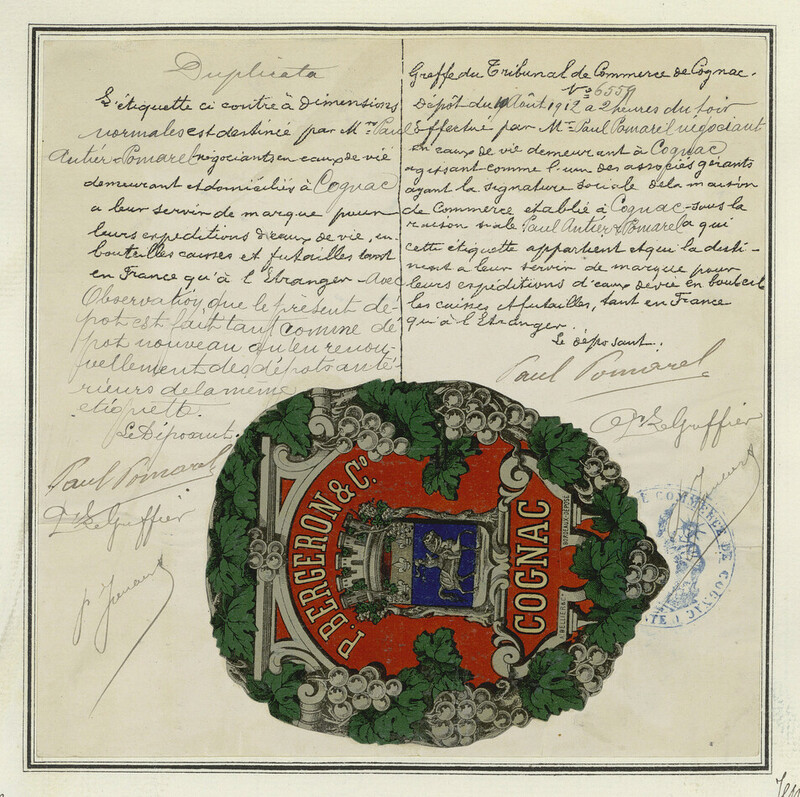 Duplicata
L'étiquette ci contre à dimensions
normales est destinée par Mrs Paul
Antier & Pomarel négociants en eaux de vie
demeurant et domiciliés à Cognac
a leur servir de marque pour
leurs expeditions d'eaux de vie, en
bouteilles caisses et futailles tant
en France qu'à l'Etranger - Avec
Observation que le présent dé-
pot est fait tant comme dé
pot nouveau qu'en renou-
vellement des dépots anté
rieurs de la même
étiquette.
Le Déposant.
Paul Pomarel
Greffe du Tribunal de Commerce de Cognac.
No 6559
Depôt du Août 1912 a 2 heures du soir
Effectué par Mr Paul Pomarel négociant
en eaux de vie demeurant à Cognac
agissant comme l'un des associés gérants
ayant la signature sociale de la maison
de Commerce etablie à Cognac sous la
raison sociale Paul Antier & Pomarel a qui
cette étiquette appartient et qui la desti-
nent a leur servir de marque pour
leurs expéditions d'eaux de vie en bouteil
les caisses et futailles, tant en France
qu'à l'Etranger.
Le déposant.
Paul Pomarel
P. BERGERON & Co.
COGNAC
BORDEAUX-DÉPOSÉ
DE COMMERCE DE COGNAC